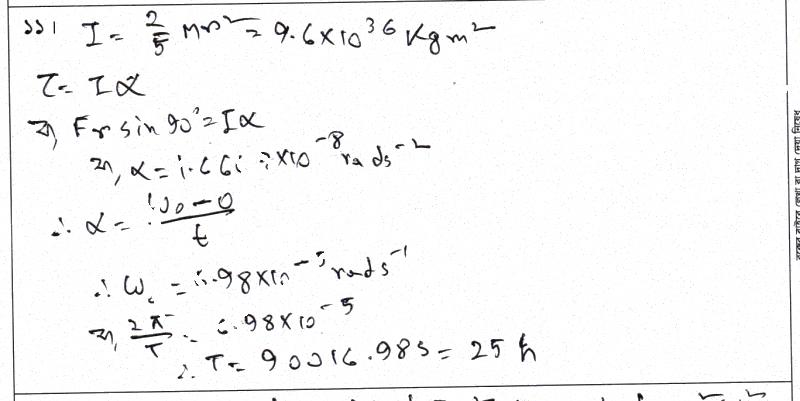 ১১। I = 2/5 Mr² = 9.6×10³⁶ kgm²
τ = Iα
বা, Fr sin 90° = Iα
বা, α = 1.661 ×10⁻⁸ rads⁻²
∴ α = (ω₀ - 0)/t
∴ ω = 6.98×10⁻⁵ rads⁻¹
বা, 2π/T = 6.98×10⁻⁵
∴ T = 90016.98s = 25 h